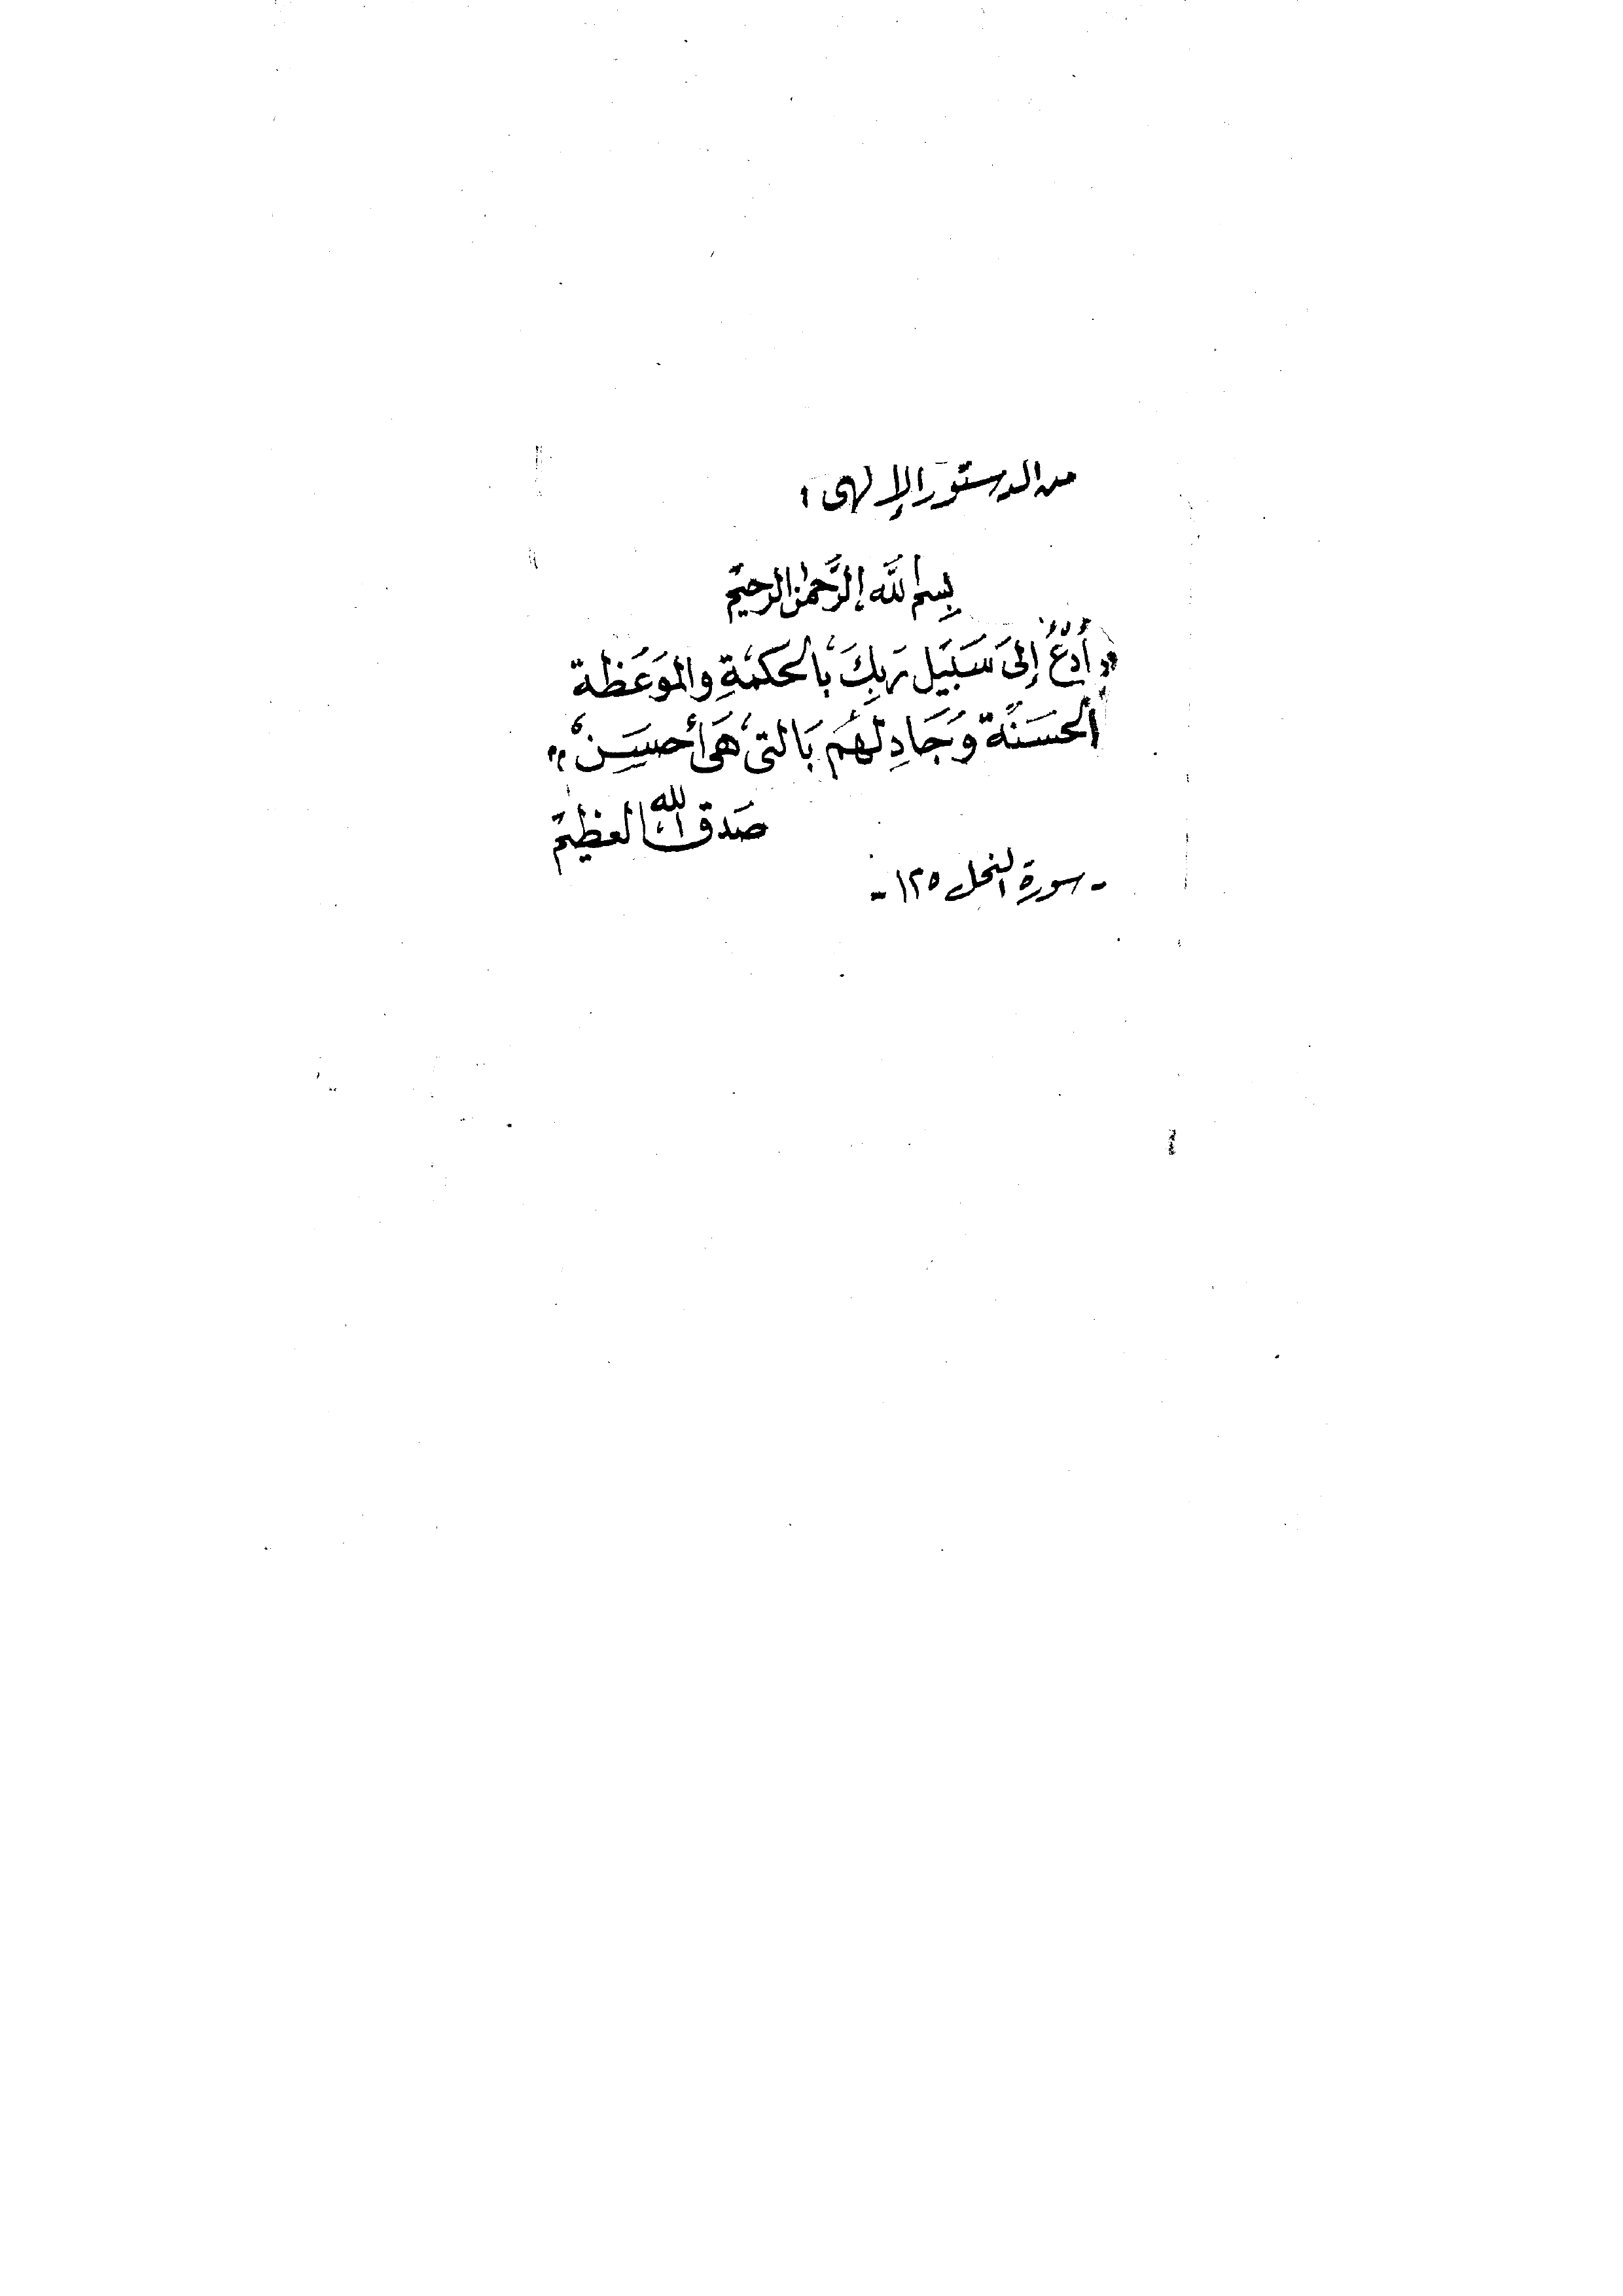 من الدستور الإلهى :
بسم الله الرَّحمٰن الرحيم
« أُدعُ إلىَ سَبيَل رَبكِ بالحكمَةِ والموَعَظة
الحسَنَة وَجَادِلهُم بَالتى هَى أحسَن »
صَدق الله العظيم
- سورة النحل ١٢٥ -